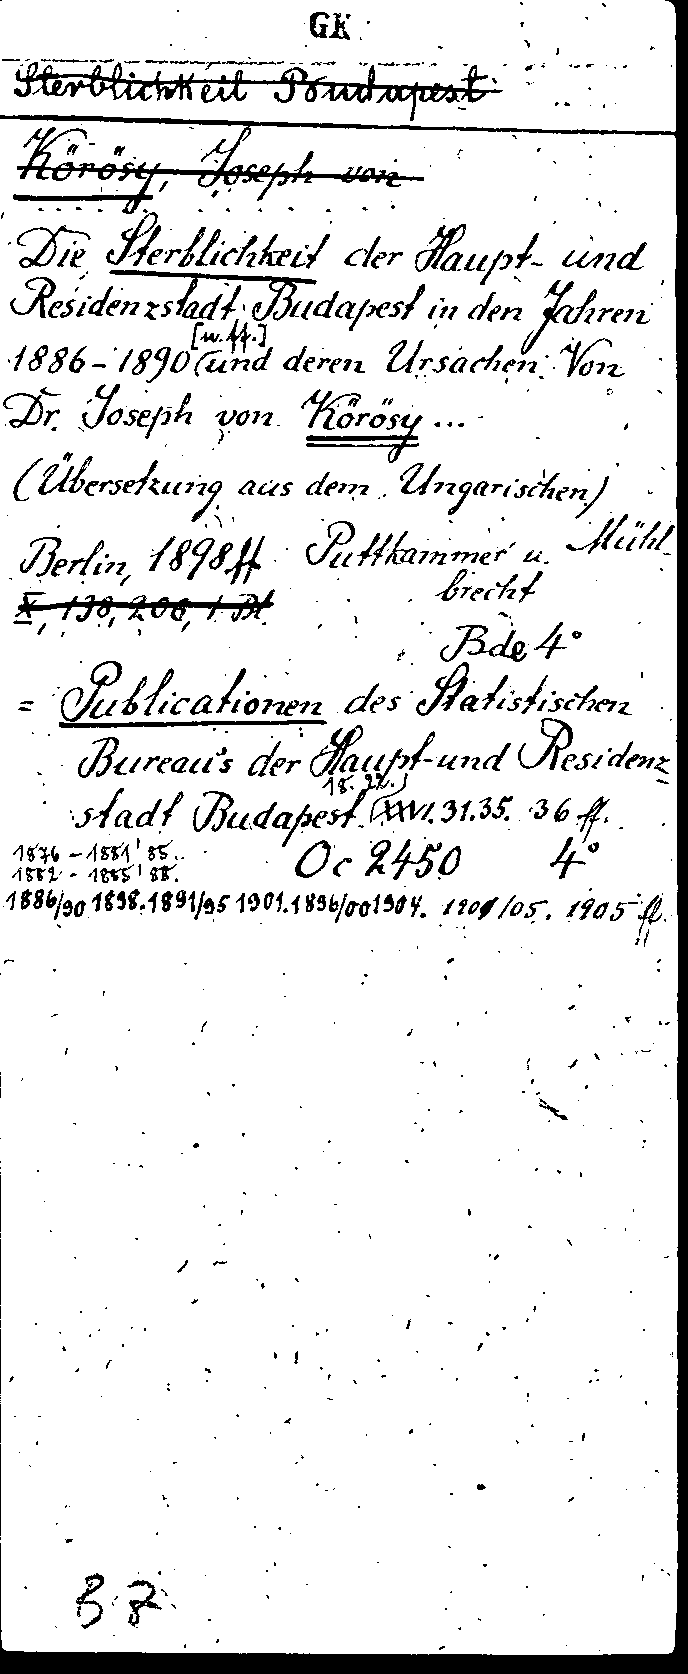 GK
Sterblichkeit Budapest
Körösy, Joseph von
Die Sterblichkeit der Haupt- und
Residenzstadt Budapest in den Jahren
[u. ff.]
1886-1890 (und deren Ursachen. Von
Dr. Joseph von Körösy ...
(Übersetzung aus dem Ungarischen)
Berlin, 1898 ff Puttkammer u. Mühl-
brecht
X, 138, 206, 1 Bl
Bde 4°
= Publicationen des Statistischen
Bureau's der Haupt- und Residenz
18. 22.)
stadt Budapest. (XXVI. 31. 35. 36 ff.
1876-1881' 85.
1882-1885' 88.
Oc 2450 4°
1886/90 1898. 1891/95 1901. 1896/00 1904. 1901/05. 1905 ff.
B 7